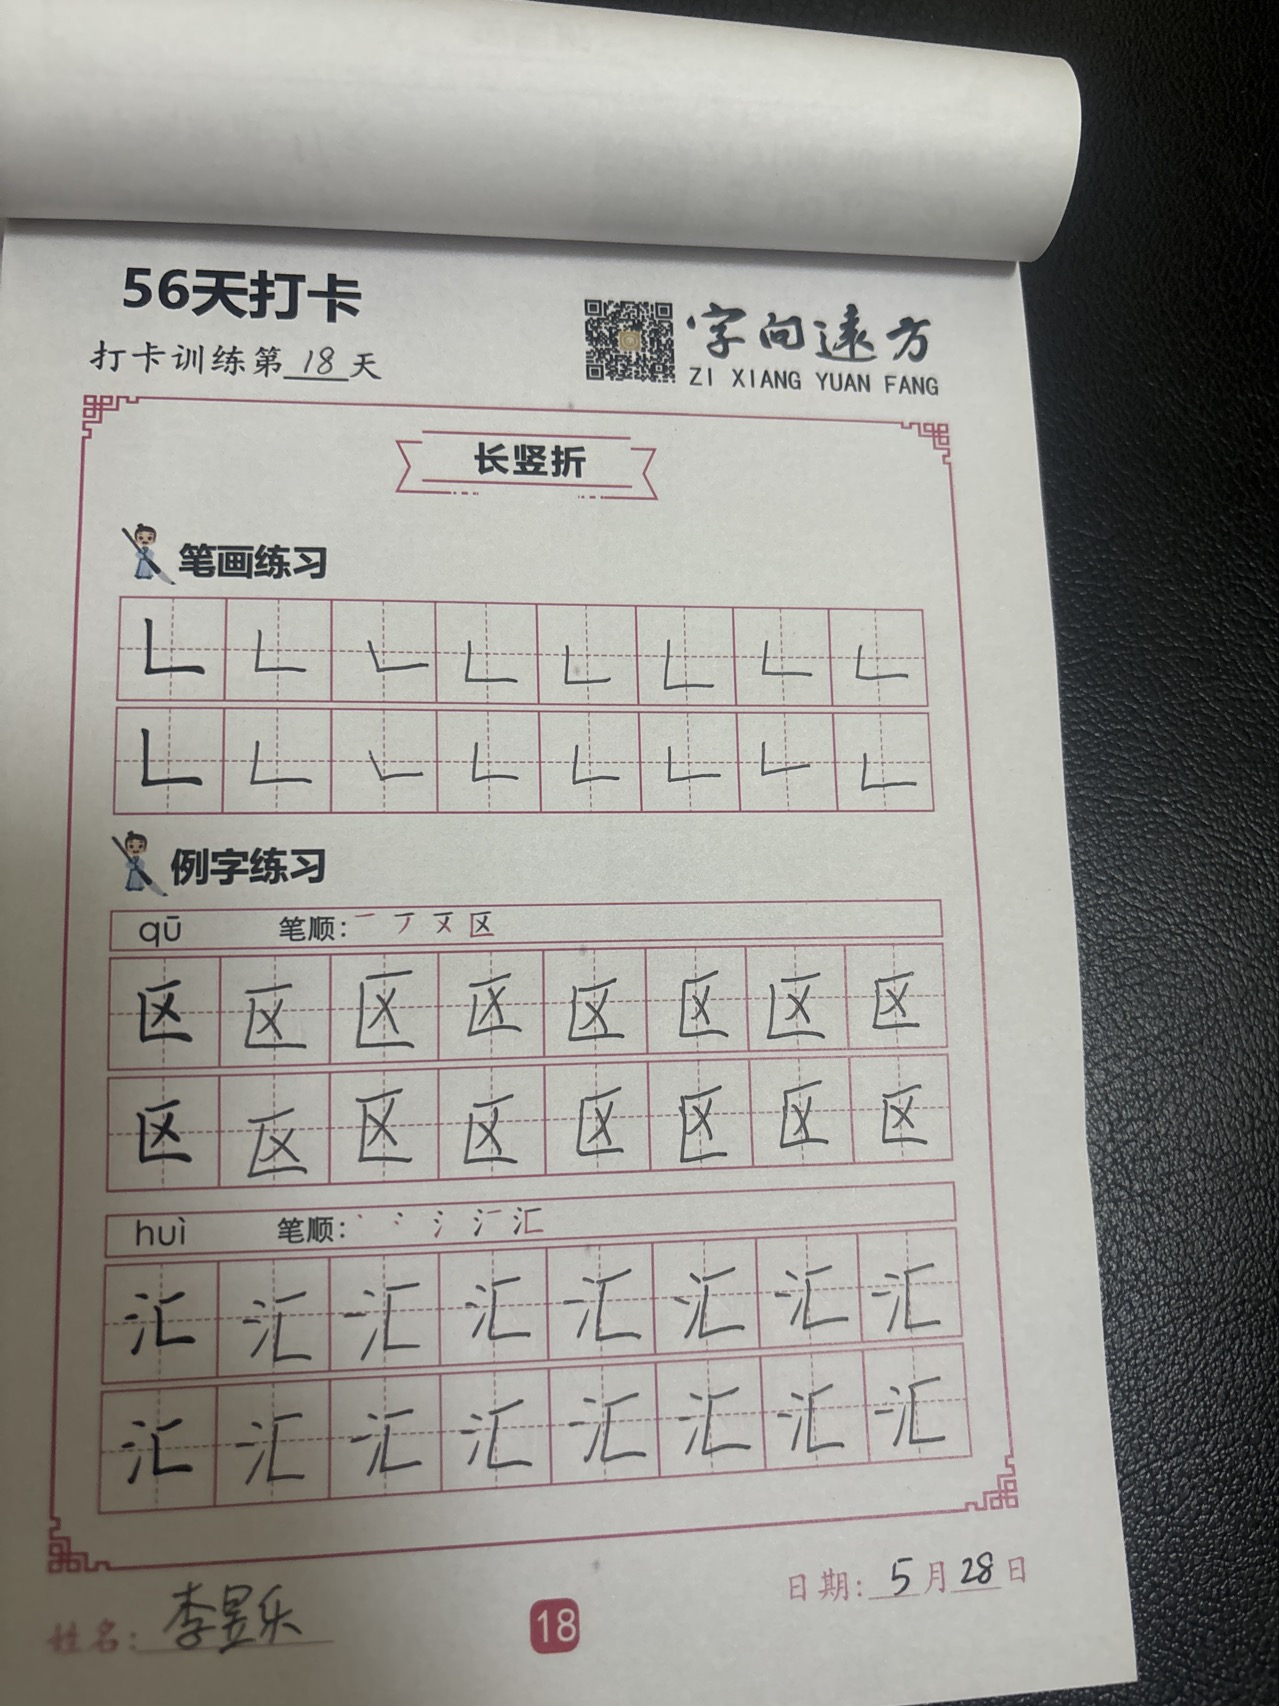 56天打卡
打卡训练第18天
字向遠方
ZI XIANG YUAN FANG
长竖折
笔画练习
𠃊 𠃊 𠃊 𠃊 𠃊 𠃊 𠃊 𠃊
𠃊 𠃊 𠃊 𠃊 𠃊 𠃊 𠃊 𠃊
例字练习
qū 笔顺: 一 丆 区
区 区 区 区 区 区 区 区
区 区 区 区 区 区 区 区
huì 笔顺: 丶 冫 氵 汇
汇 汇 汇 汇 汇 汇 汇 汇
汇 汇 汇 汇 汇 汇 汇 汇
姓名: 李昱乐
18
日期: 5月28日